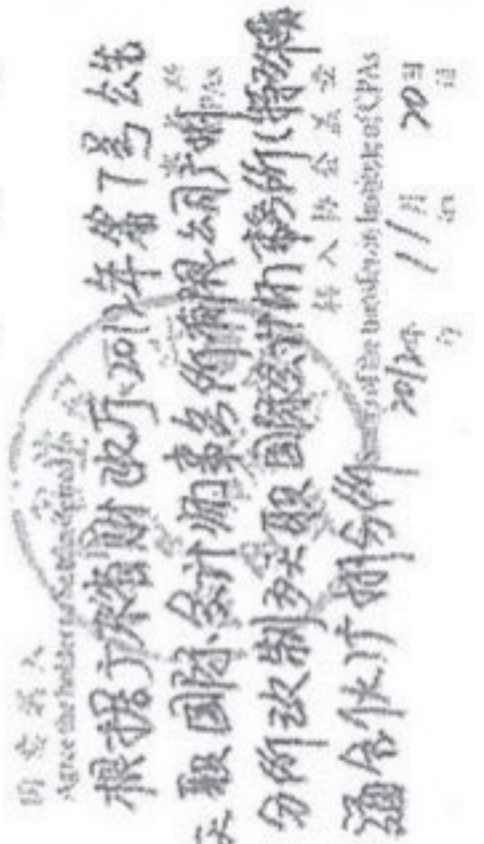 同意调入
Agree the holder to be transferred to
根据广东省财政厅2012年第7号公告
天职国际会计师事务所有限公司广州
分所改制为天职国际会计师事务所(特殊
普通合伙)广州分所
转入协会盖章
Stamp of the transfer-in Institute of CPAs
2012年 11月 20日